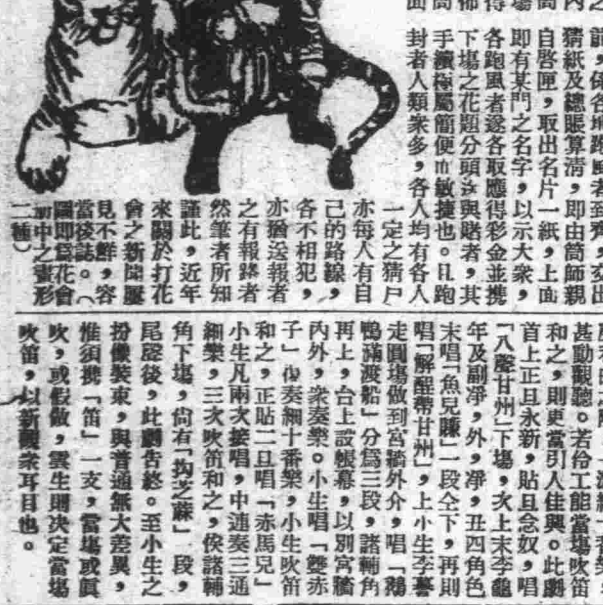 猜紙及總賬算清,即由筒師親
自啓匣,取出名片一紙,上面
即有某門之名字,以示大衆,
各跑風者遂各取應得彩金並携
下塲之花題分頭送與賭者,其
手續極屬簡便而敏捷也。且跑
封者人類衆多,各人均有各人
一定之猜戶
亦每人有自
己的路線,
各不相犯,
亦猶送報者
之有報路者
然筆者所知
謹此,近年
來關於打花
會之新聞屢
見不鮮,容
當後誌。(
圖即爲花會
前中之畫形
二種)
甚動觀聽。若給工能當塲吹笛
和之,則更當引人佳興。此劇
首上正旦永新,貼旦念奴,唱
「八聲甘州」下塲,次上末李龜
年及副凈,外,凈,丑四角色
末唱「魚兒賺」一段仝下,再則
唱「解酲帶甘州」,上小生李謩
走圓塲做到宮牆外介,唱「鵝
鴨滿渡船」分爲三段,諸輔角
再上,台上設帳幕,以別宮牆
內外,衆奏樂。小生唱「雙赤
子」復奏細十番樂,小生吹笛
和之,正貼二旦唱「赤馬兒」
小生凡兩次接唱,中連奏三通
細樂,三次吹笛和之,俟諸輔
角下塲,尙有「拗芝蔴」段,
尾聲後,此劇吿終。至小生之
扮儀裝束,與普通無大差異,
惟須携「笛」一支,當塲或眞
吹,或假做,雲生則決定當塲
吹笛,以新觀衆耳目也。